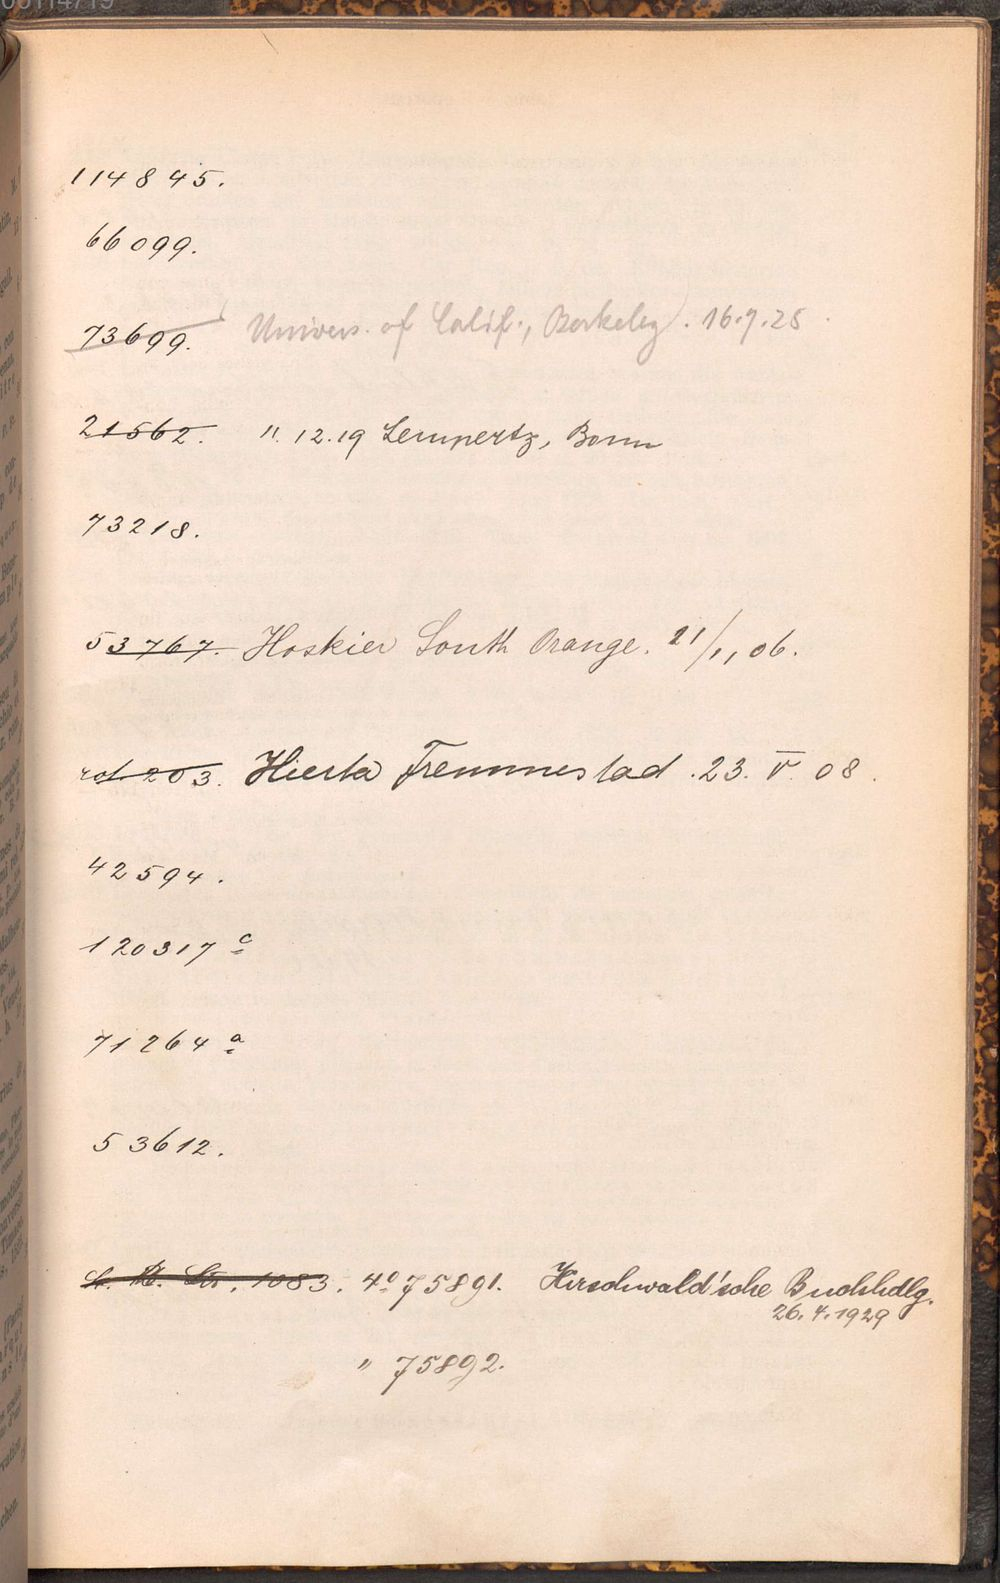 114845.
66099.
73699. Univers. of Calif., Berkeley. 16.9.25
21562. 11.12.19 Lempertz, Bonn
73218.
53767. Hoskier South Orange. 21/1, 06.
rot 203. Hierta Fremmestad. 23. V. 08.
42594.
120317 c
71264 a
53612.
1083. 4° 75891. Hirschwald'sche Buchhdlg.
26.4.1929
" 75892.